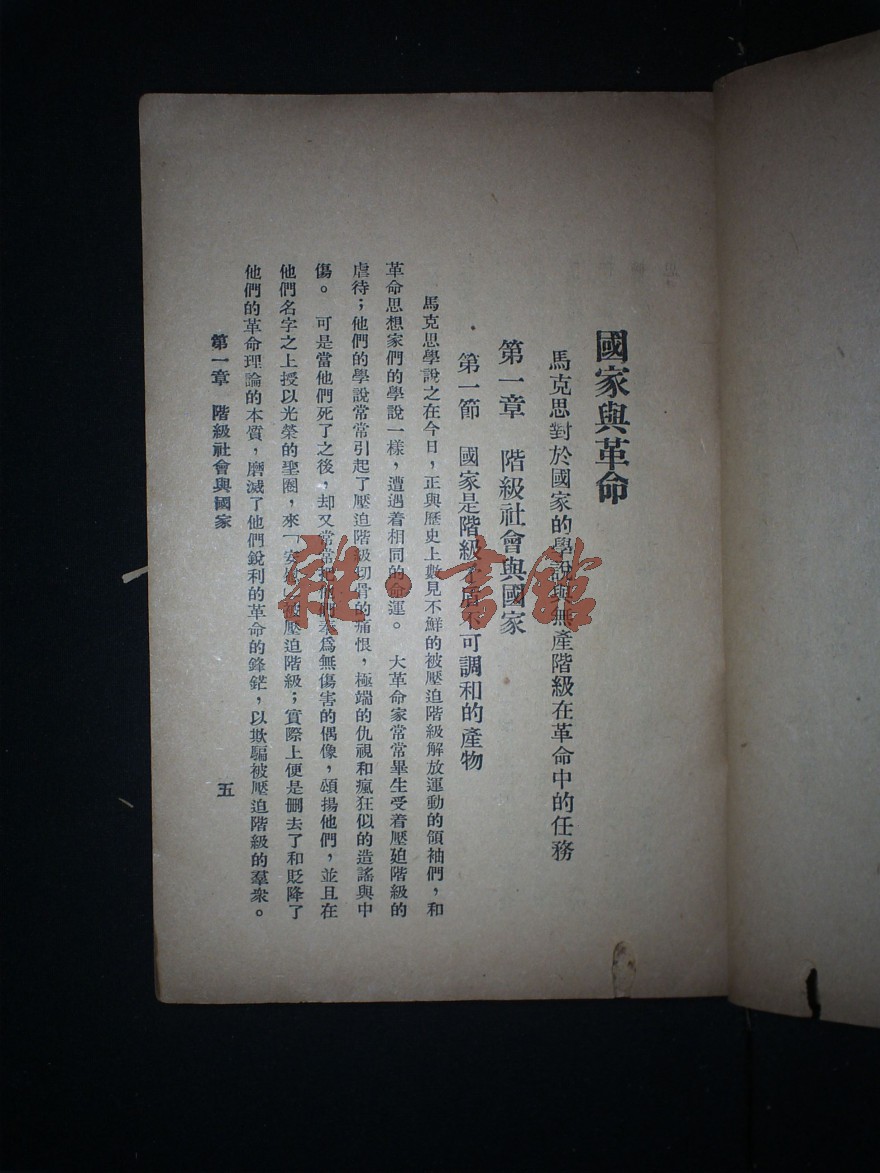 國家與革命
馬克思對於國家的學說與無產階級在革命中的任務
第一章 階級社會與國家
第一節 國家是階級矛盾不可調和的產物
馬克思學說之在今日，正與歷史上數見不鮮的被壓迫階級解放運動的領袖們，和
革命思想家們的學說一樣，遭遇着相同的命運。 大革命家常常畢生受着壓廹階級的
虐待；他們的學說常常引起了壓迫階級切骨的痛恨，極端的仇視和瘋狂似的造謠與中
傷。 可是當他們死了之後，却又常常把他們奉爲無傷害的偶像，頌揚他們，並且在
他們名字之上授以光榮的聖圈，來「安慰」被壓迫階級；實際上便是删去了和貶降了
他們的革命理論的本質，磨滅了他們銳利的革命的鋒鋩，以欺騙被壓迫階級的羣衆。
第一章 階級社會與國家
五
雜·書館